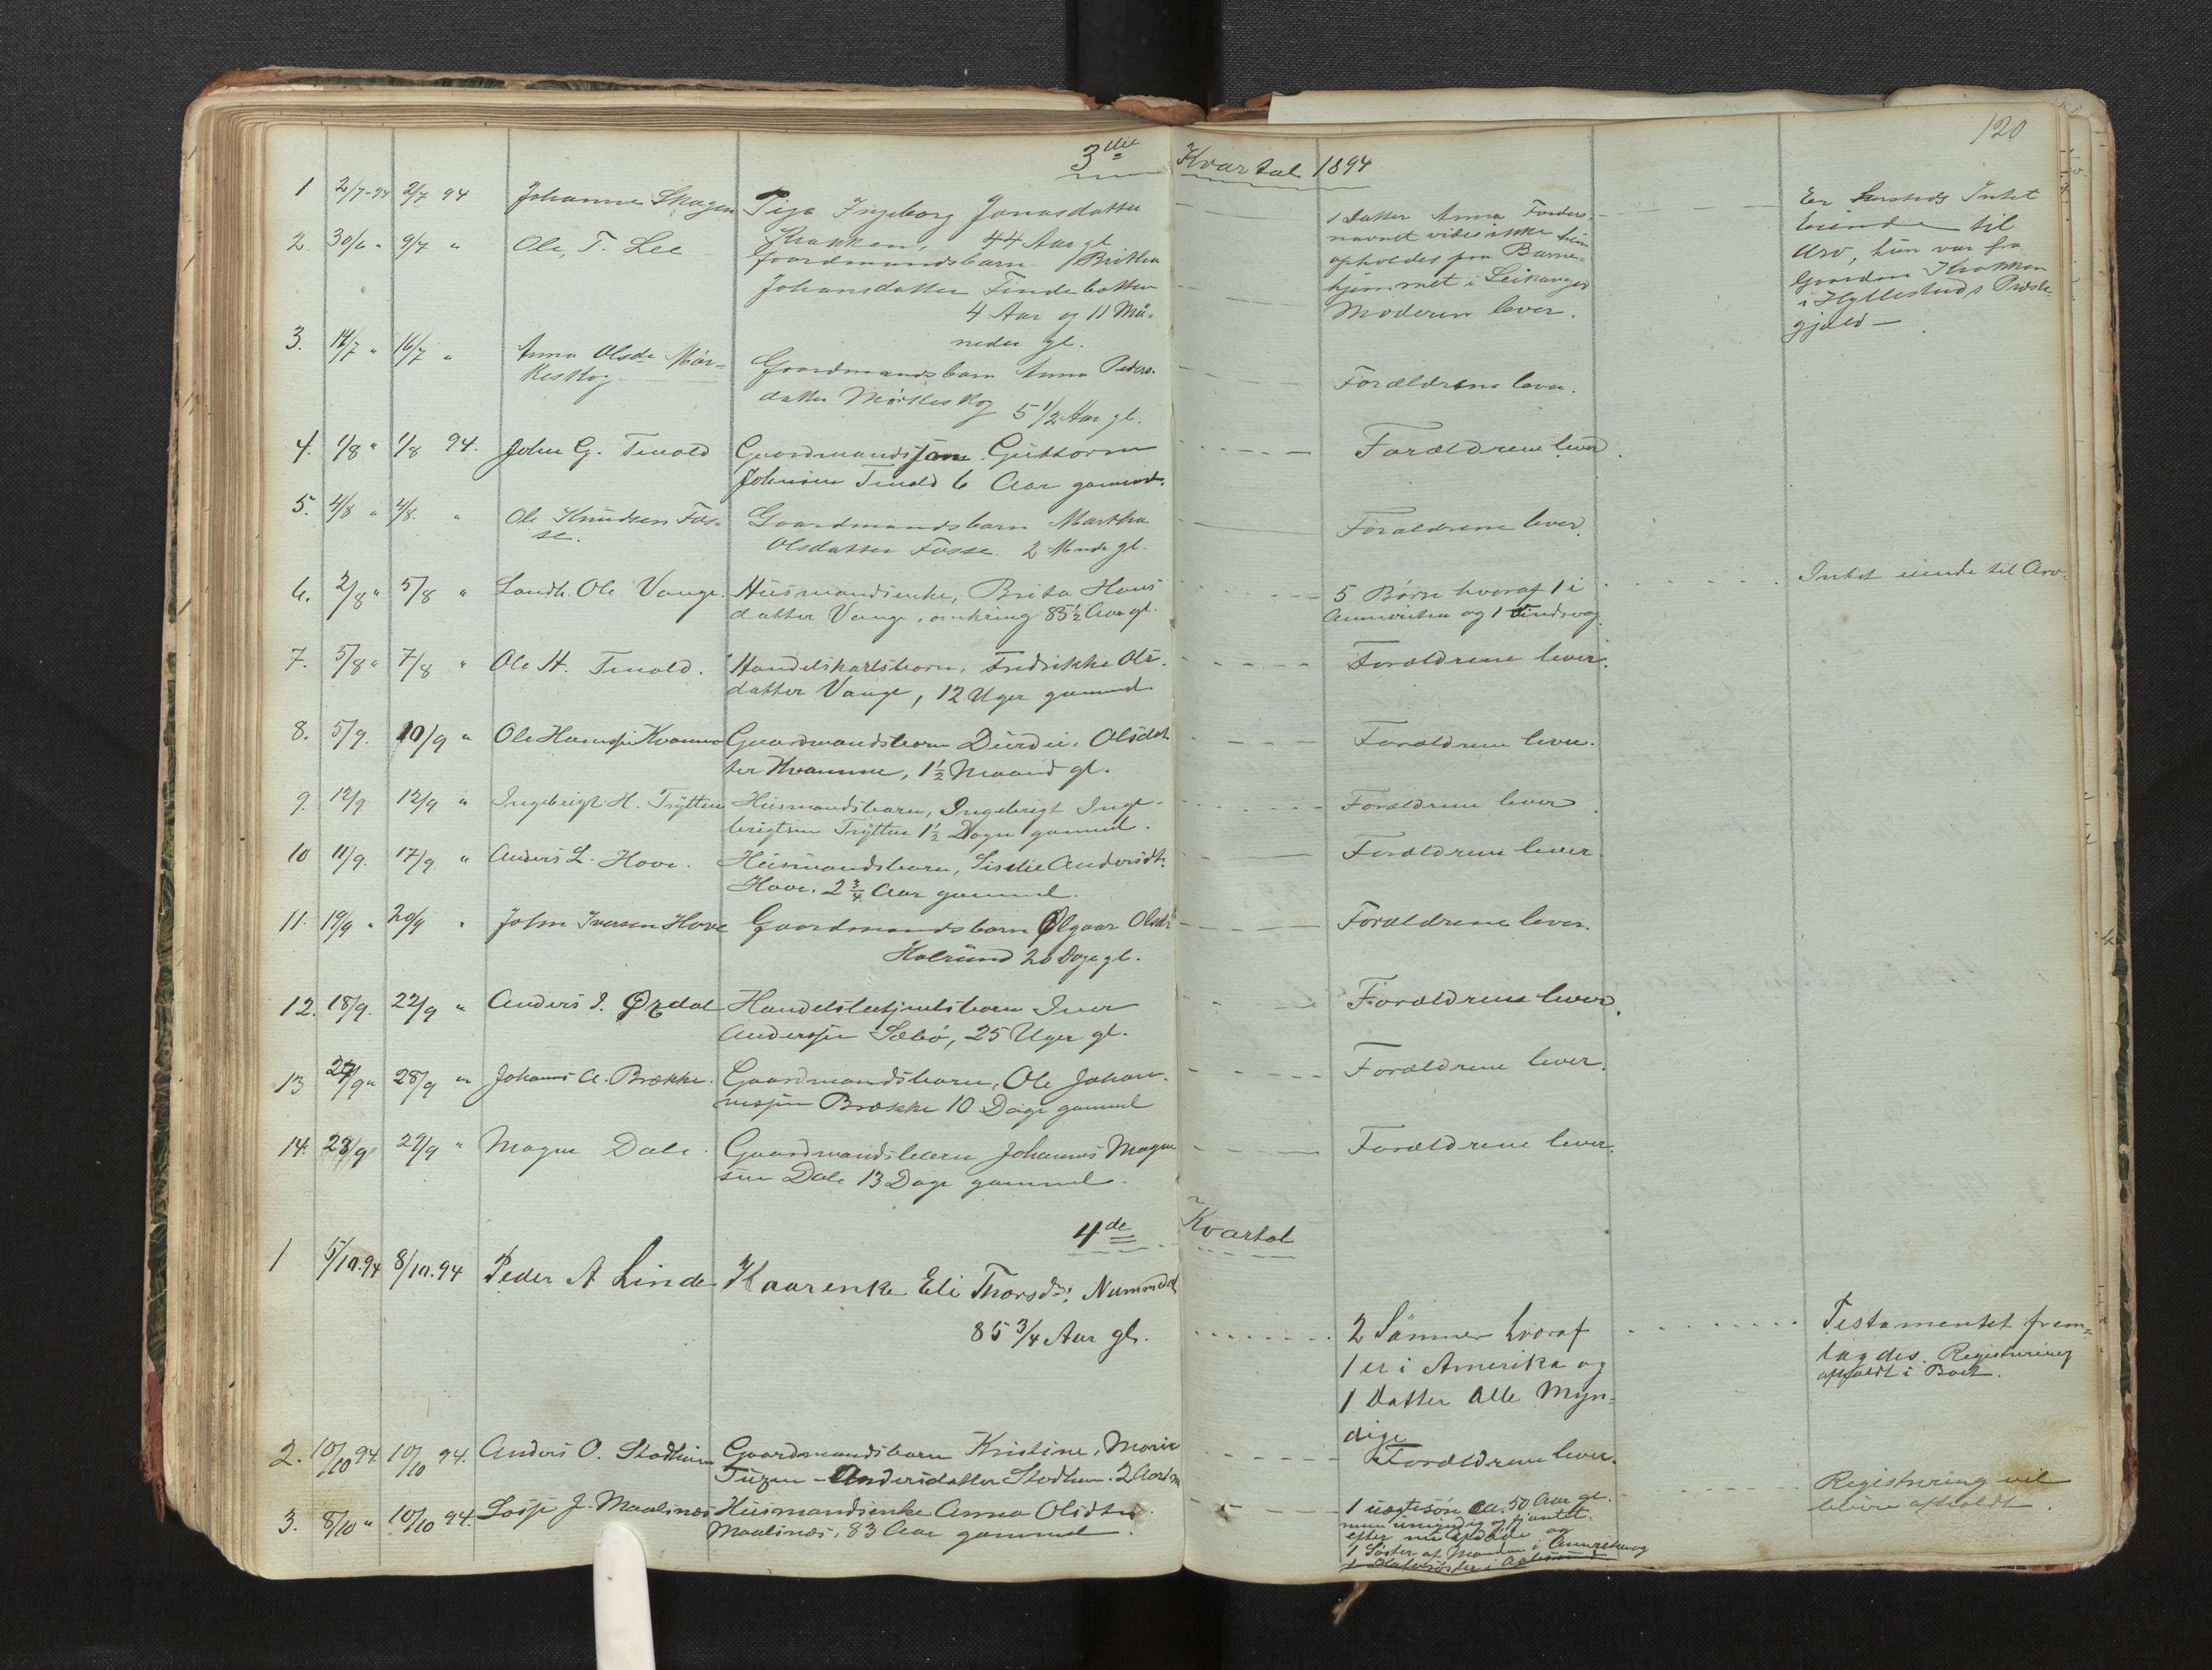 120
3die Kvartal 1894
1 2/7-94 2/7 94 Johanne Skagen Pige Ingeborg Jonasdatter
Krakken, 44 Aar gl
1 Datter Anna
navnet vides ikke hun
opholdes paa Barne-
hjemmet i Leikanger
Er Intet
Eiende til
Arv, hun var fra
Gaarden Krakken
i Hyllestads Præste-
gjæld —
2. 30/6 " 9/7 " Ole, T. Lee Gaardmandsbarn Britha
Johansdatter Finde
4 Aar og 11 Må-
neder gl.
Moderen lever.
3. 14/7 " 16/7 " Anna Olsdr Mør-
keskog
Gaardmandsbarn Anna Peders-
datter Mørkeskog 5 1/2 Aar gl.
Forældrene lever.
4. 1/8 " 1/8 94. John G. Tenold Gaardmandssøn Guttorm
Johnsen Tenold 6 Aar gammel.
Forældrene lever.
5. 4/8 " 4/8. " Ole Knudsen Fos-
se.
Gaardmandsbarn Martha
Olsdatter Fosse. 2 Mndr gl.
Forældrene lever.
6. 2/8 " 5/8 " Landh. Ole Vange. Husmandsenke, Brita Hans
datter Vange, omkring 83½ Aar gl.
5 Børn hvoraf 1 i
Ammerika og 1
Intet eiende til Arv.
7. 5/8 " 7/8 " Ole H. Tenold. Handelskarlsbarn, Fredrikke Ols-
datter Vange, 12 Uger gammel.
Forældrene lever.
8. 5/9. 10/9 " Ole Hansen Kvamme Gaardmandsbarn Durdei, Olsdat
ter Kvamme, 1½ Maaned gl.
Forældrene lever.
9. 12/9 12/9 " Ingebrigt H. Trytten Husmandsbarn, Ingebrigt Inge-
brigtsen Trytten 1½ Døgn gammel.
Forældrene lever.
10 11/9. 17/9 " Anders L. Hove. Husmandsbarn, Sisilie Andersdtr.
Hove. 2 3/4 Aar gammel.
Forældrene lever.
11. 19/9 " 20/9 " John Iversen Hove Gaardmandsbarn Olgaar Olsdr
Holrund 20 Dage gl.
Forældrene lever.
12. 18/9. 22/9 " Anders I. Ørdal Handelsbetjentsbarn Iver
Andersen Sæbø, 25 Uger gl.
Forældrene lever.
13 27/9 " 28/9 " Johannes A. Brække. Gaardmandsbarn, Ole Johan-
nesen Brække 10 Dage gammel
Forældrene lever.
14. 28/9 29/9 " Magne Dale. Gaardmandsbarn Johannes Magne
sen Dale 13 Dage gammel.
Forældrene lever.
4de Kvartal
1 5/10.94 8/10.94 Peder A Linde Kaarenke Eli Thorsdr. Nummedal
85 3/4 Aar gl.
2 Sønner hvoraf
1 er i Amerika og
1 Datter alle Myn-
dige
Testamentet frem-
lagdes. Registrering
afholdt i Boet.
2. 10/10 94. 10/10 94. Anders O. Stadheim Gaardmandsbarn Kristine, Marie
Andersdatter Stadheim. 2 Aar
Forældrene lever.
3. 8/10 " 10/10 94. Lasse J. Maalsnæs Husmandsenke Anna Olsdtr
Maalsnæs, 83 Aar gammel.
1 uægtesøn ca. 50 Aar gl.
men umyndig og fjantet.
1 Søster af Manden i Amerika og
Registrering vil
blive afholdt.